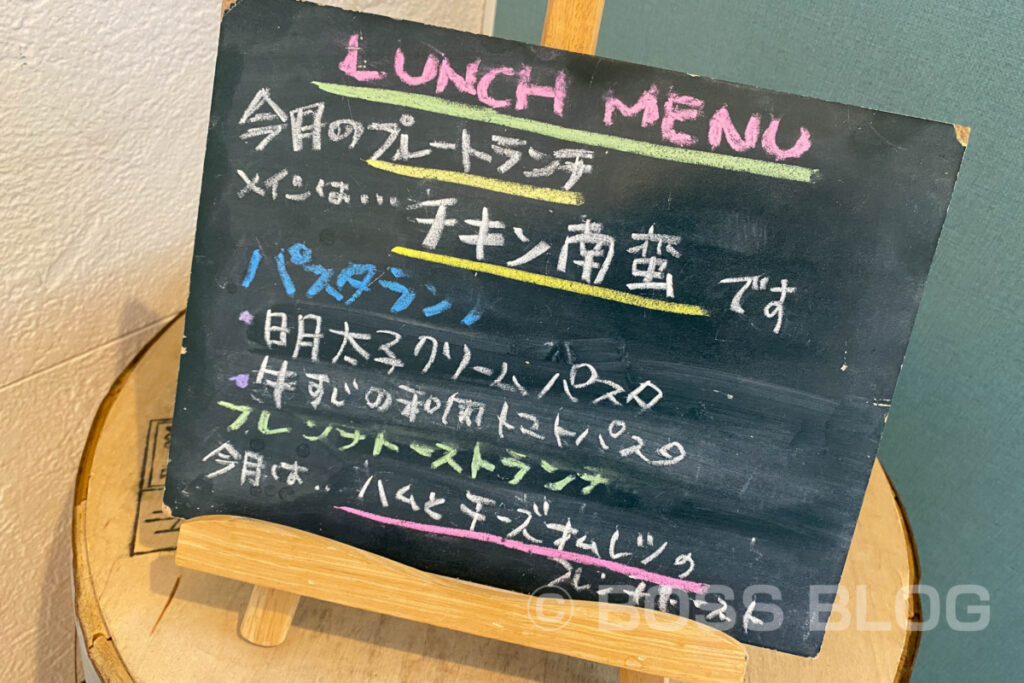 LUNCH MENU
今月のプレートランチ
メインは… チキン南蛮 です
パスタランチ
・明太子クリームパスタ
・牛すじの和風トマトパスタ
フレンチトーストランチ
今月は… ハムとチーズオムレツの
フレンチトースト
© BOSS BLOG